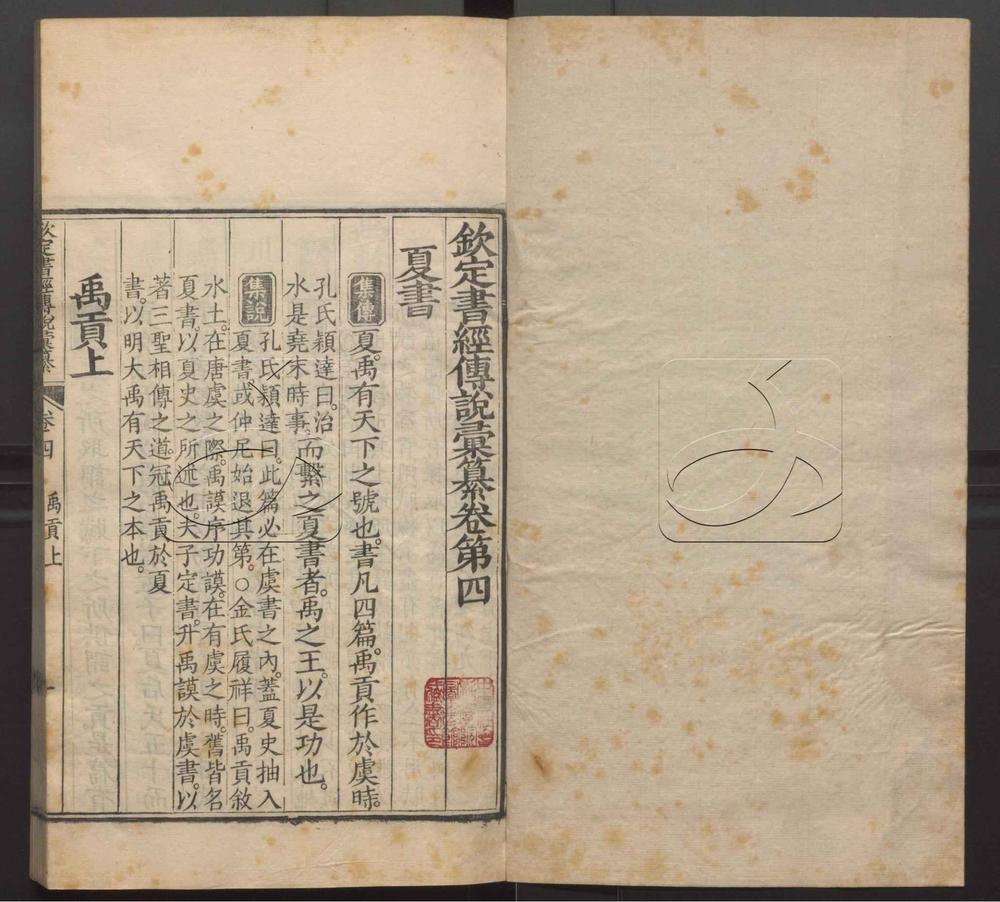 欽定書經傳說彙纂卷第四
夏書
集傳 夏。禹有天下之號也。書凡四篇。禹貢作於虞時。
孔氏穎達曰。治
水是堯末時事。
而繫之夏書者。禹之王。以是功也。
集說 孔氏穎達曰。此篇必在虞書之內。蓋夏史抽入
夏書。或仲尼始退其第。○金氏履祥曰。禹貢敘
水土。在唐虞之際。禹謨序功謨。在有虞之時。舊皆名
夏書。以夏史之所述也。夫子定書。升禹謨於虞書。以
著三聖相傳之道。冠禹貢於夏
書。以明大禹有天下之本也。
禹貢上
欽定書經傳說彙纂 卷四 禹貢上 一